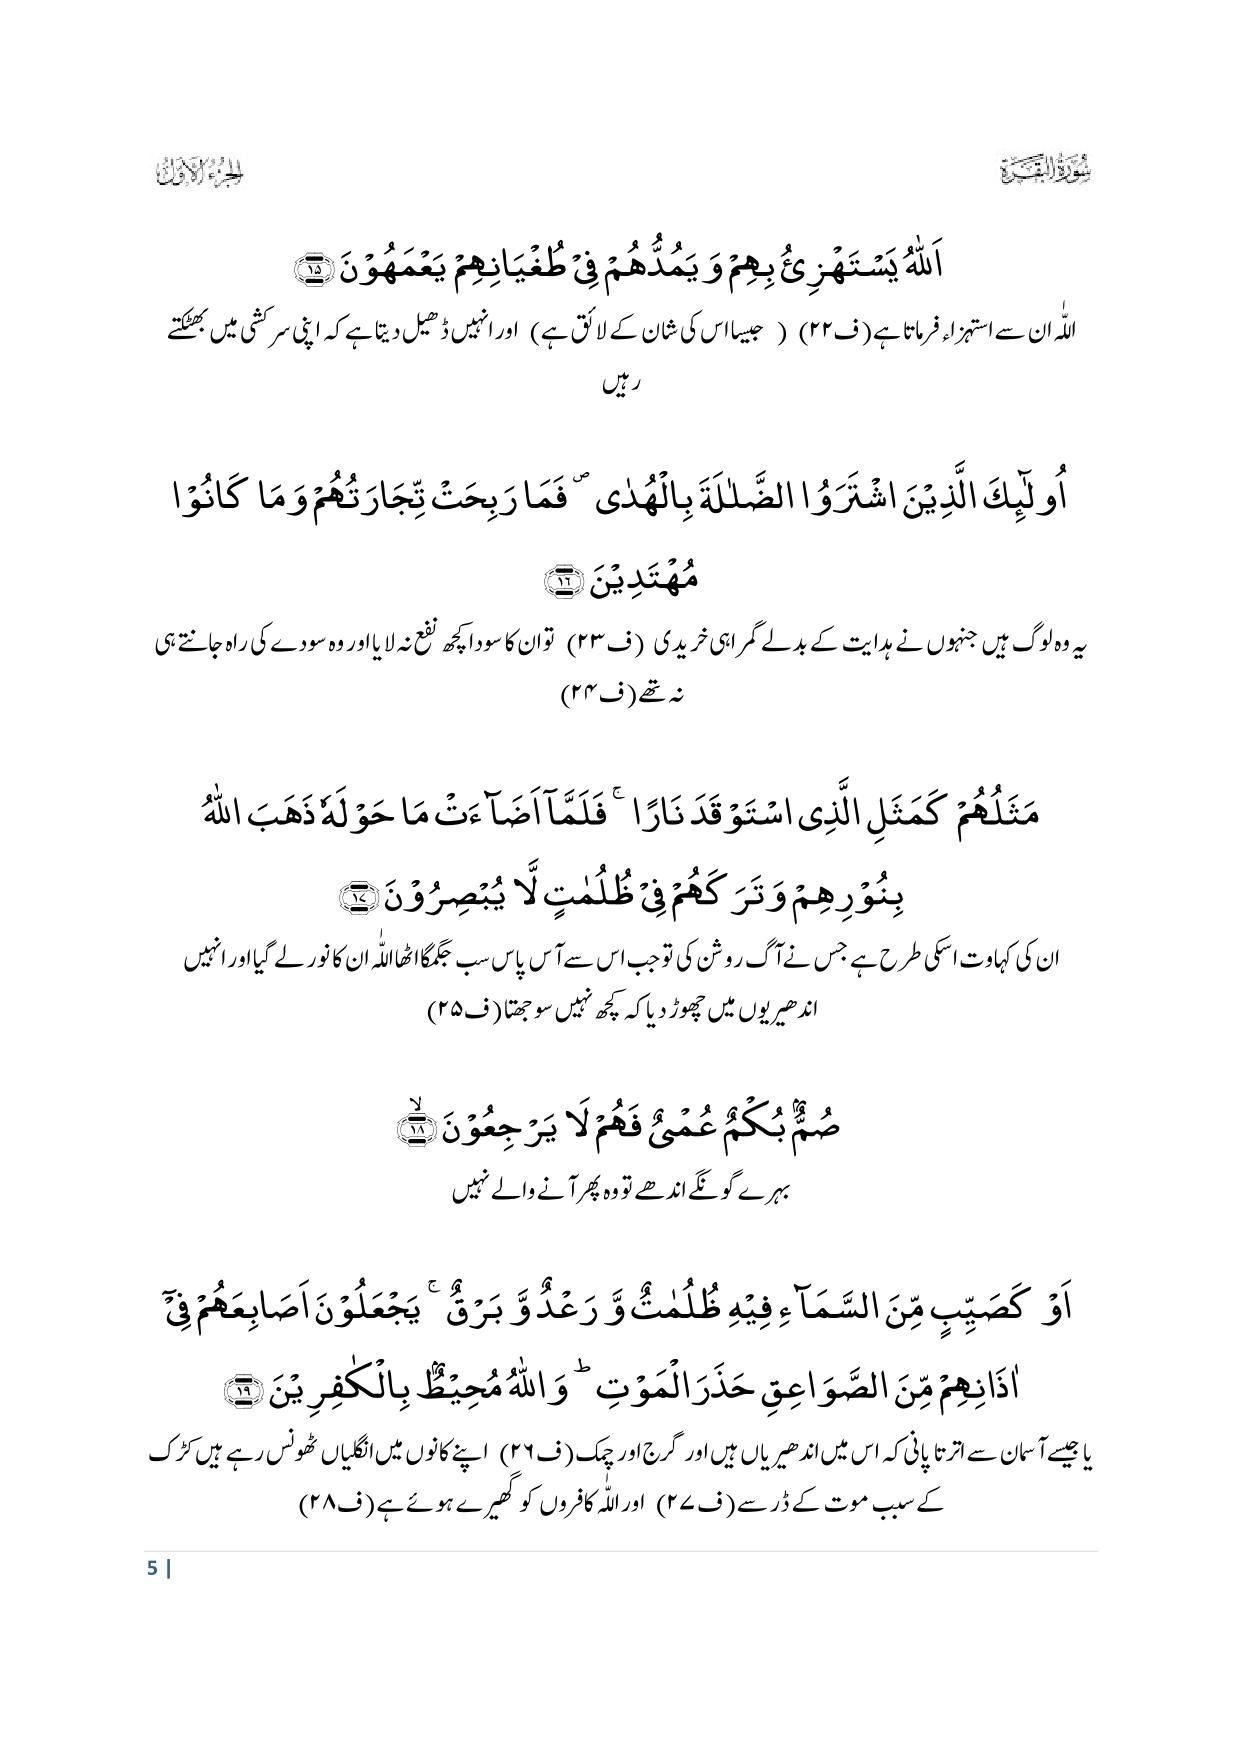 سُوْرَةُ الْبَقَـرَة
الجزء الاول
اَللّٰهُ یَسْتَهْزِئُ بِهِمْ وَ یَمُدُّهُمْ فِیْ طُغْیَانِهِمْ یَعْمَهُوْنَ ﴿۱۵﴾
اللّٰہ ان سے استہزاء فرماتا ہے (ف۲۲) ( جیسا اس کی شان کے لائق ہے) اور انہیں ڈھیل دیتا ہے کہ اپنی سرکشی میں بھٹکتے
رہیں
اُولٰٓىِٕكَ الَّذِیْنَ اشْتَرَوُا الضَّلٰلَةَ بِالْهُدٰى ۪ فَمَا رَبِحَتْ تِّجَارَتُهُمْ وَ مَا كَانُوْا
مُهْتَدِیْنَ ﴿۱۶﴾
یہ وہ لوگ ہیں جنہوں نے ہدایت کے بدلے گمراہی خریدی (ف۲۳) تو ان کا سودا کچھ نفع نہ لایا اور وہ سودے کی راہ جانتے ہی
نہ تھے (ف۲۴)
مَثَلُهُمْ كَمَثَلِ الَّذِی اسْتَوْقَدَ نَارًا ۚ فَلَمَّاۤ اَضَآءَتْ مَا حَوْلَهٗ ذَهَبَ اللّٰهُ
بِنُوْرِهِمْ وَ تَرَكَهُمْ فِیْ ظُلُمٰتٍ لَّا یُبْصِرُوْنَ ﴿۱۷﴾
ان کی کہاوت اسکی طرح ہے جس نے آگ روشن کی تو جب اس سے آس پاس سب جگمگا اٹھا اللّٰہ ان کا نور لے گیا اور انہیں
اندھیریوں میں چھوڑ دیا کہ کچھ نہیں سوجھتا (ف۲۵)
صُمٌّۢ بُكْمٌ عُمْیٌ فَهُمْ لَا یَرْجِعُوْنَ ﴿ۙ۱۸﴾
بہرے گونگے اندھے تو وہ پھر آنے والے نہیں
اَوْ كَصَیِّبٍ مِّنَ السَّمَآءِ فِیْهِ ظُلُمٰتٌ وَّ رَعْدٌ وَّ بَرْقٌ ۚ یَجْعَلُوْنَ اَصَابِعَهُمْ فِیْۤ
اٰذَانِهِمْ مِّنَ الصَّوَاعِقِ حَذَرَ الْمَوْتِ ؕ وَ اللّٰهُ مُحِیْطٌۢ بِالْكٰفِرِیْنَ ﴿۱۹﴾
یا جیسے آسمان سے اترتا پانی کہ اس میں اندھیریاں ہیں اور گرج اور چمک (ف۲۶) اپنے کانوں میں انگلیاں ٹھونس رہے ہیں کڑک
کے سبب موت کے ڈر سے (ف۲۷) اور اللّٰہ کافروں کو گھیرے ہوئے ہے (ف۲۸)
5 |